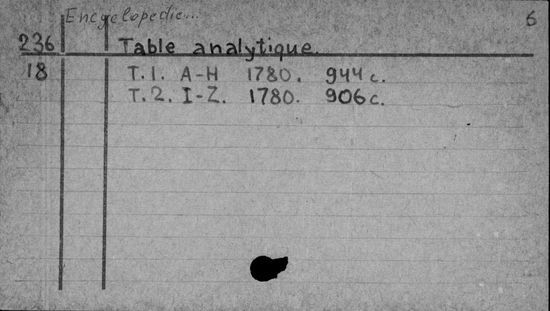 Encyclopedie... 6
236 Table analytique.
18 T.1. A-H 1780. 944 c.
T.2. I-Z. 1780. 906 c.